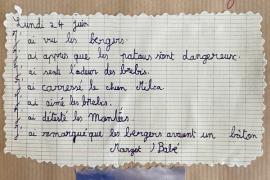 Lundi 24 juin
J'ai vu les bergers.
J'ai appris que les patous sont dangereux.
J'ai senti l'odeur des brebis.
J'ai carressé le chien Melca
J'ai aimé les brebis.
J'ai détesté les Montées.
J'ai remarqué que les bergers avaient un bâton
Margot / Babé